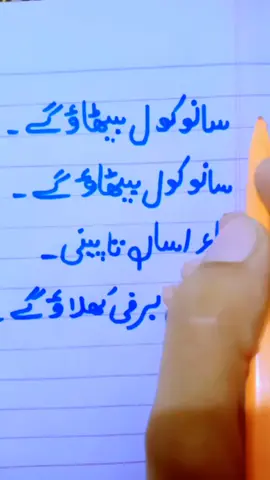 سانو کول بیٹھاؤ گے ۔
سانو کول بیٹھاؤ گے ۔
اساں نا پینی ۔
برفی کھداؤ گے ۔